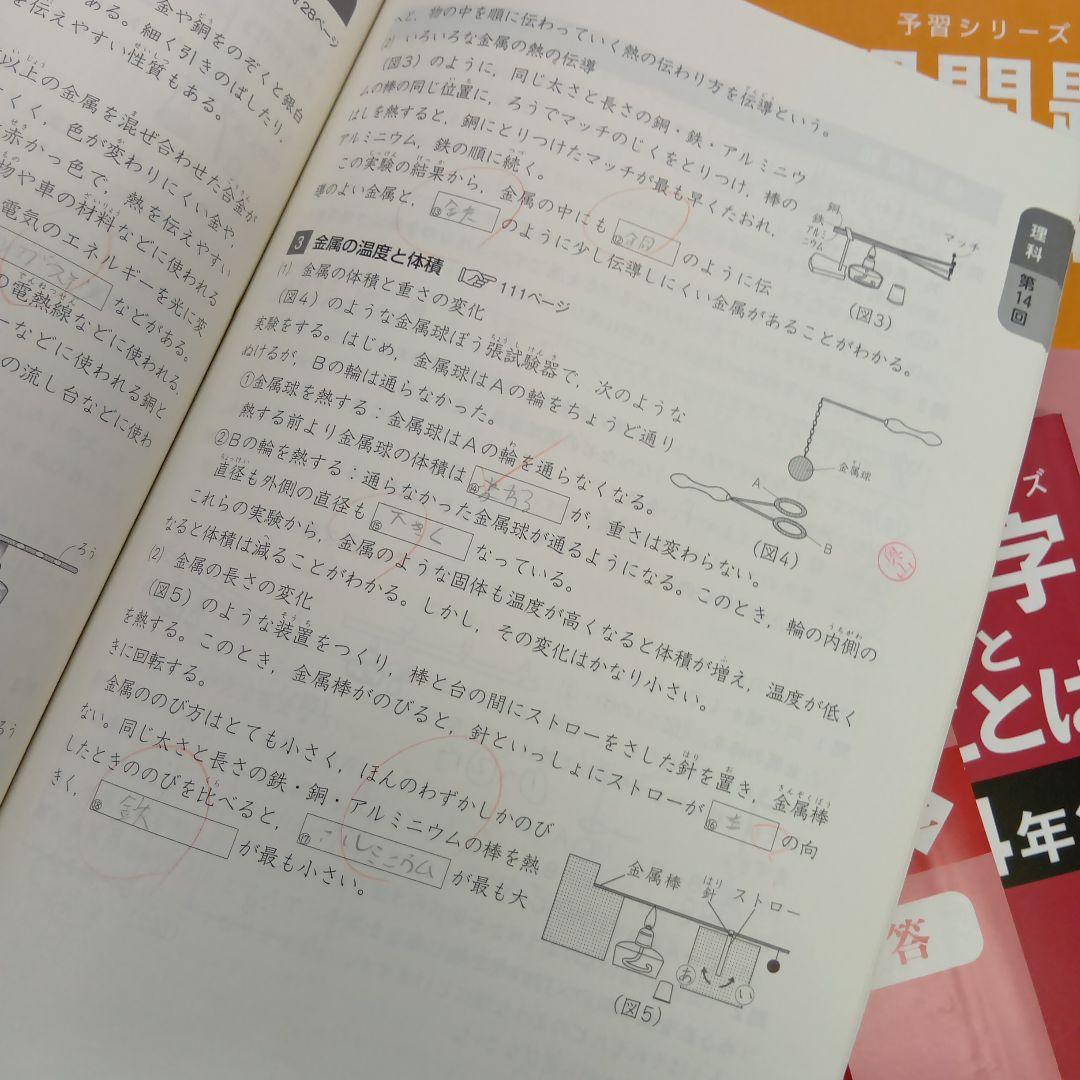 28ページ
金や銅をのぞくと銀白
ある。細く引きのばしたり，
を伝えやすい性質もある。
以上の金属を混ぜ合わせた合金が
くく，色が変わりにくい金や，
赤かっ色で，熱を伝えやすい
物や車の材料などに使われる
電気のエネルギーを光に変
などがある。
の電熱線などに使われる，
ーなどに使われる銅と
の流し台などに使わ
ろう
ろう
物の中を順に伝わっていく熱の伝わり方を伝導という。
(2) いろいろな金属の熱の伝導
（図3）のように，同じ太さと長さの銅・鉄・アルミニウ
ムの棒の同じ位置に，ろうでマッチのじくをとりつけ，棒の
はしを熱すると，銅にとりつけたマッチが最も早くたおれ，
アルミニウム，鉄の順に続く。
この実験の結果から，金属の中にも ⑫ 銅 のように伝
導のよい金属と， ⑬ 鉄 のように少し伝導しにくい金属があることがわかる。
銅
鉄
アルミ
ニウム
マッチ
（図3）
3 金属の温度と体積 111ページ
(1) 金属の体積と重さの変化
（図4）のような金属球ぼう張試験器で，次のような
実験をする。はじめ，金属球はAの輪をちょうど通り
ぬけるが，Bの輪は通らなかった。
①金属球を熱する：金属球はAの輪を通らなくなる。
熱する前より金属球の体積は ⑭ が，重さは変わらない。
②Bの輪を熱する：通らなかった金属球が通るようになる。このとき，輪の内側の
直径も外側の直径も ⑮ 大きく なっている。
これらの実験から，金属のような固体も温度が高くなると体積が増え，温度が低く
なると体積は減ることがわかる。しかし，その変化はかなり小さい。
金属球
A
B
（図4）
(2) 金属の長さの変化
（図5）のような装置をつくり，棒と台の間にストローをさした針を置き，金属棒
を熱する。このとき，金属棒がのびると，針といっしょにストローが ⑯ の向
きに回転する。
金属ののび方はとても小さく，ほんのわずかしかのび
ない。同じ太さと長さの鉄・銅・アルミニウムの棒を熱
したときののびを比べると， ⑰ アルミニウム が最も大
きく， ⑱ 鉄 が最も小さい。
金属棒
針
ストロー
あ
い
（図5）
理科
第14回
予習シリーズ
ズ
字
と
とば
4年
答